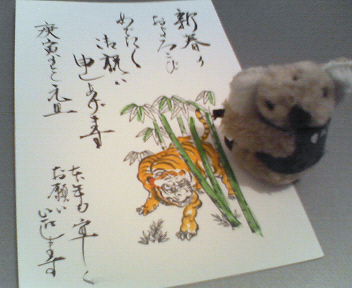 新春の
およろこび
めでたく
御祝い
申しあげます
庚寅宝と元旦
本年も宜しく
お願い
いたします